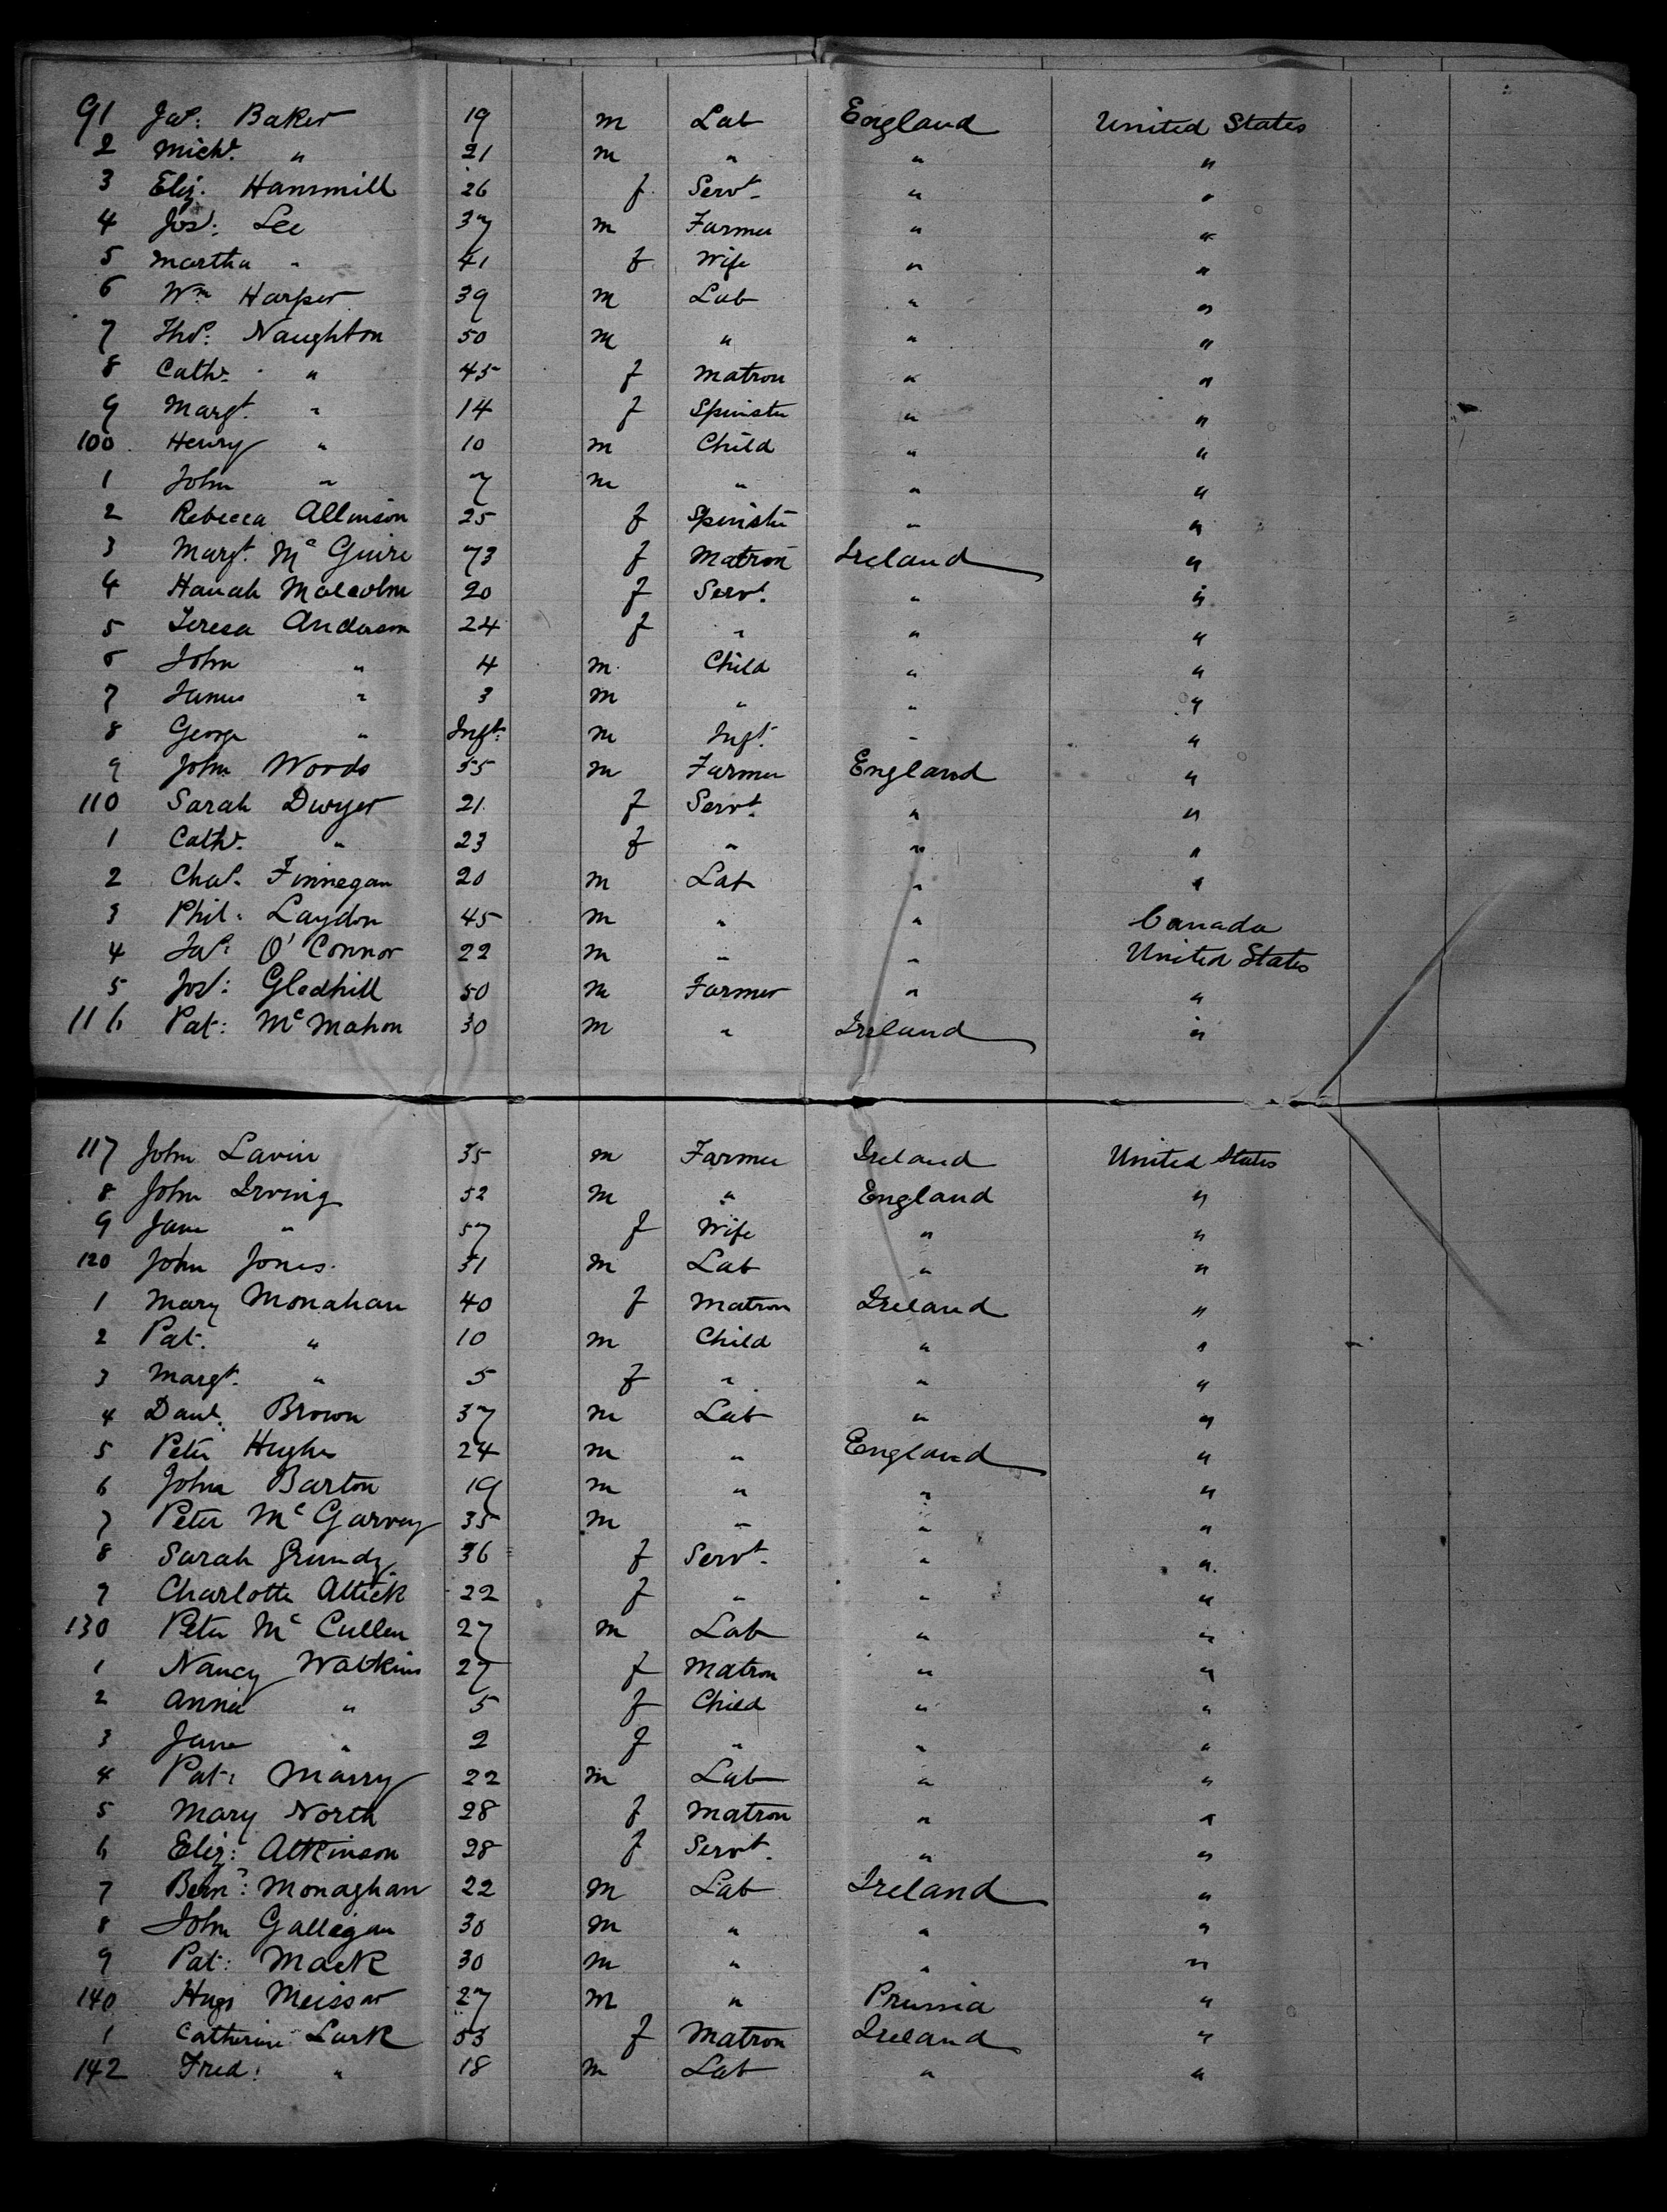 91 Jas: Baker 19 m Lab England United States
2 Michl. " 21 m " " "
3 Eliz. Hansmill 26 f Servt. " "
4 Jos: Lee 37 m Farmer " "
5 Martha " 41 f Wife " "
6 Wm Harper 39 m Lab " "
7 Thos: Naughton 50 m " " "
8 Cath. " 45 f Matron " "
9 Margt. " 14 f Spinster " "
100 Henry " 10 m Child " "
1 John " 7 m " " "
2 Rebecca Allinson 25 f Spinster " "
3 Margt. McGuire 73 f Matron Ireland "
4 Hanah Malcolm 20 f Servt. " "
5 Teresa Anderson 24 f " " "
6 John " 4 m Child " "
7 James " 3 m " " "
8 George " Inft. m Inft. " "
9 John Woods 55 m Farmer England "
110 Sarah Dwyer 21 f Servt. " "
1 Cath. " 23 f " " "
2 Chas. Finnegan 20 m Lab " "
3 Phil: Laydon 45 m " " Canada
4 Jas: O'Connor 22 m " " United States
5 Jos: Gledhill 50 m Farmer " "
116 Pat: McMahon 30 m " Ireland "
117 John Lavin 35 m Farmer Ireland United States
8 John Irving 52 m " England "
9 Jane " 57 f Wife " "
120 John Jones 31 m Lab " "
1 Mary Monahan 40 f Matron Ireland "
2 Pat. " 10 m Child " "
3 Margt. " 5 f " " "
4 Danl. Brown 37 m Lab " "
5 Peter Hughes 24 m " England "
6 John Barton 19 m " " "
7 Peter McGarvey 35 m " " "
8 Sarah Grundy 36 f Servt. " "
9 Charlotte Attick 22 f " " "
130 Peter McCullen 27 m Lab " "
1 Nancy Watkins 27 f Matron " "
2 Annie " 5 f Child " "
3 Jane " 2 f " " "
4 Pat: Marry 22 m Lab " "
5 Mary North 28 f Matron " "
6 Eliz: Atkinson 28 f Servt. " "
7 Bern: Monaghan 22 m Lab Ireland "
8 John Gallegan 30 m " " "
9 Pat: Mack 30 m " " "
140 Hugo 27 m " Prussia "
1 Catherine Lurk 53 f Matron Ireland "
142 Fred: " 18 m Lab " "